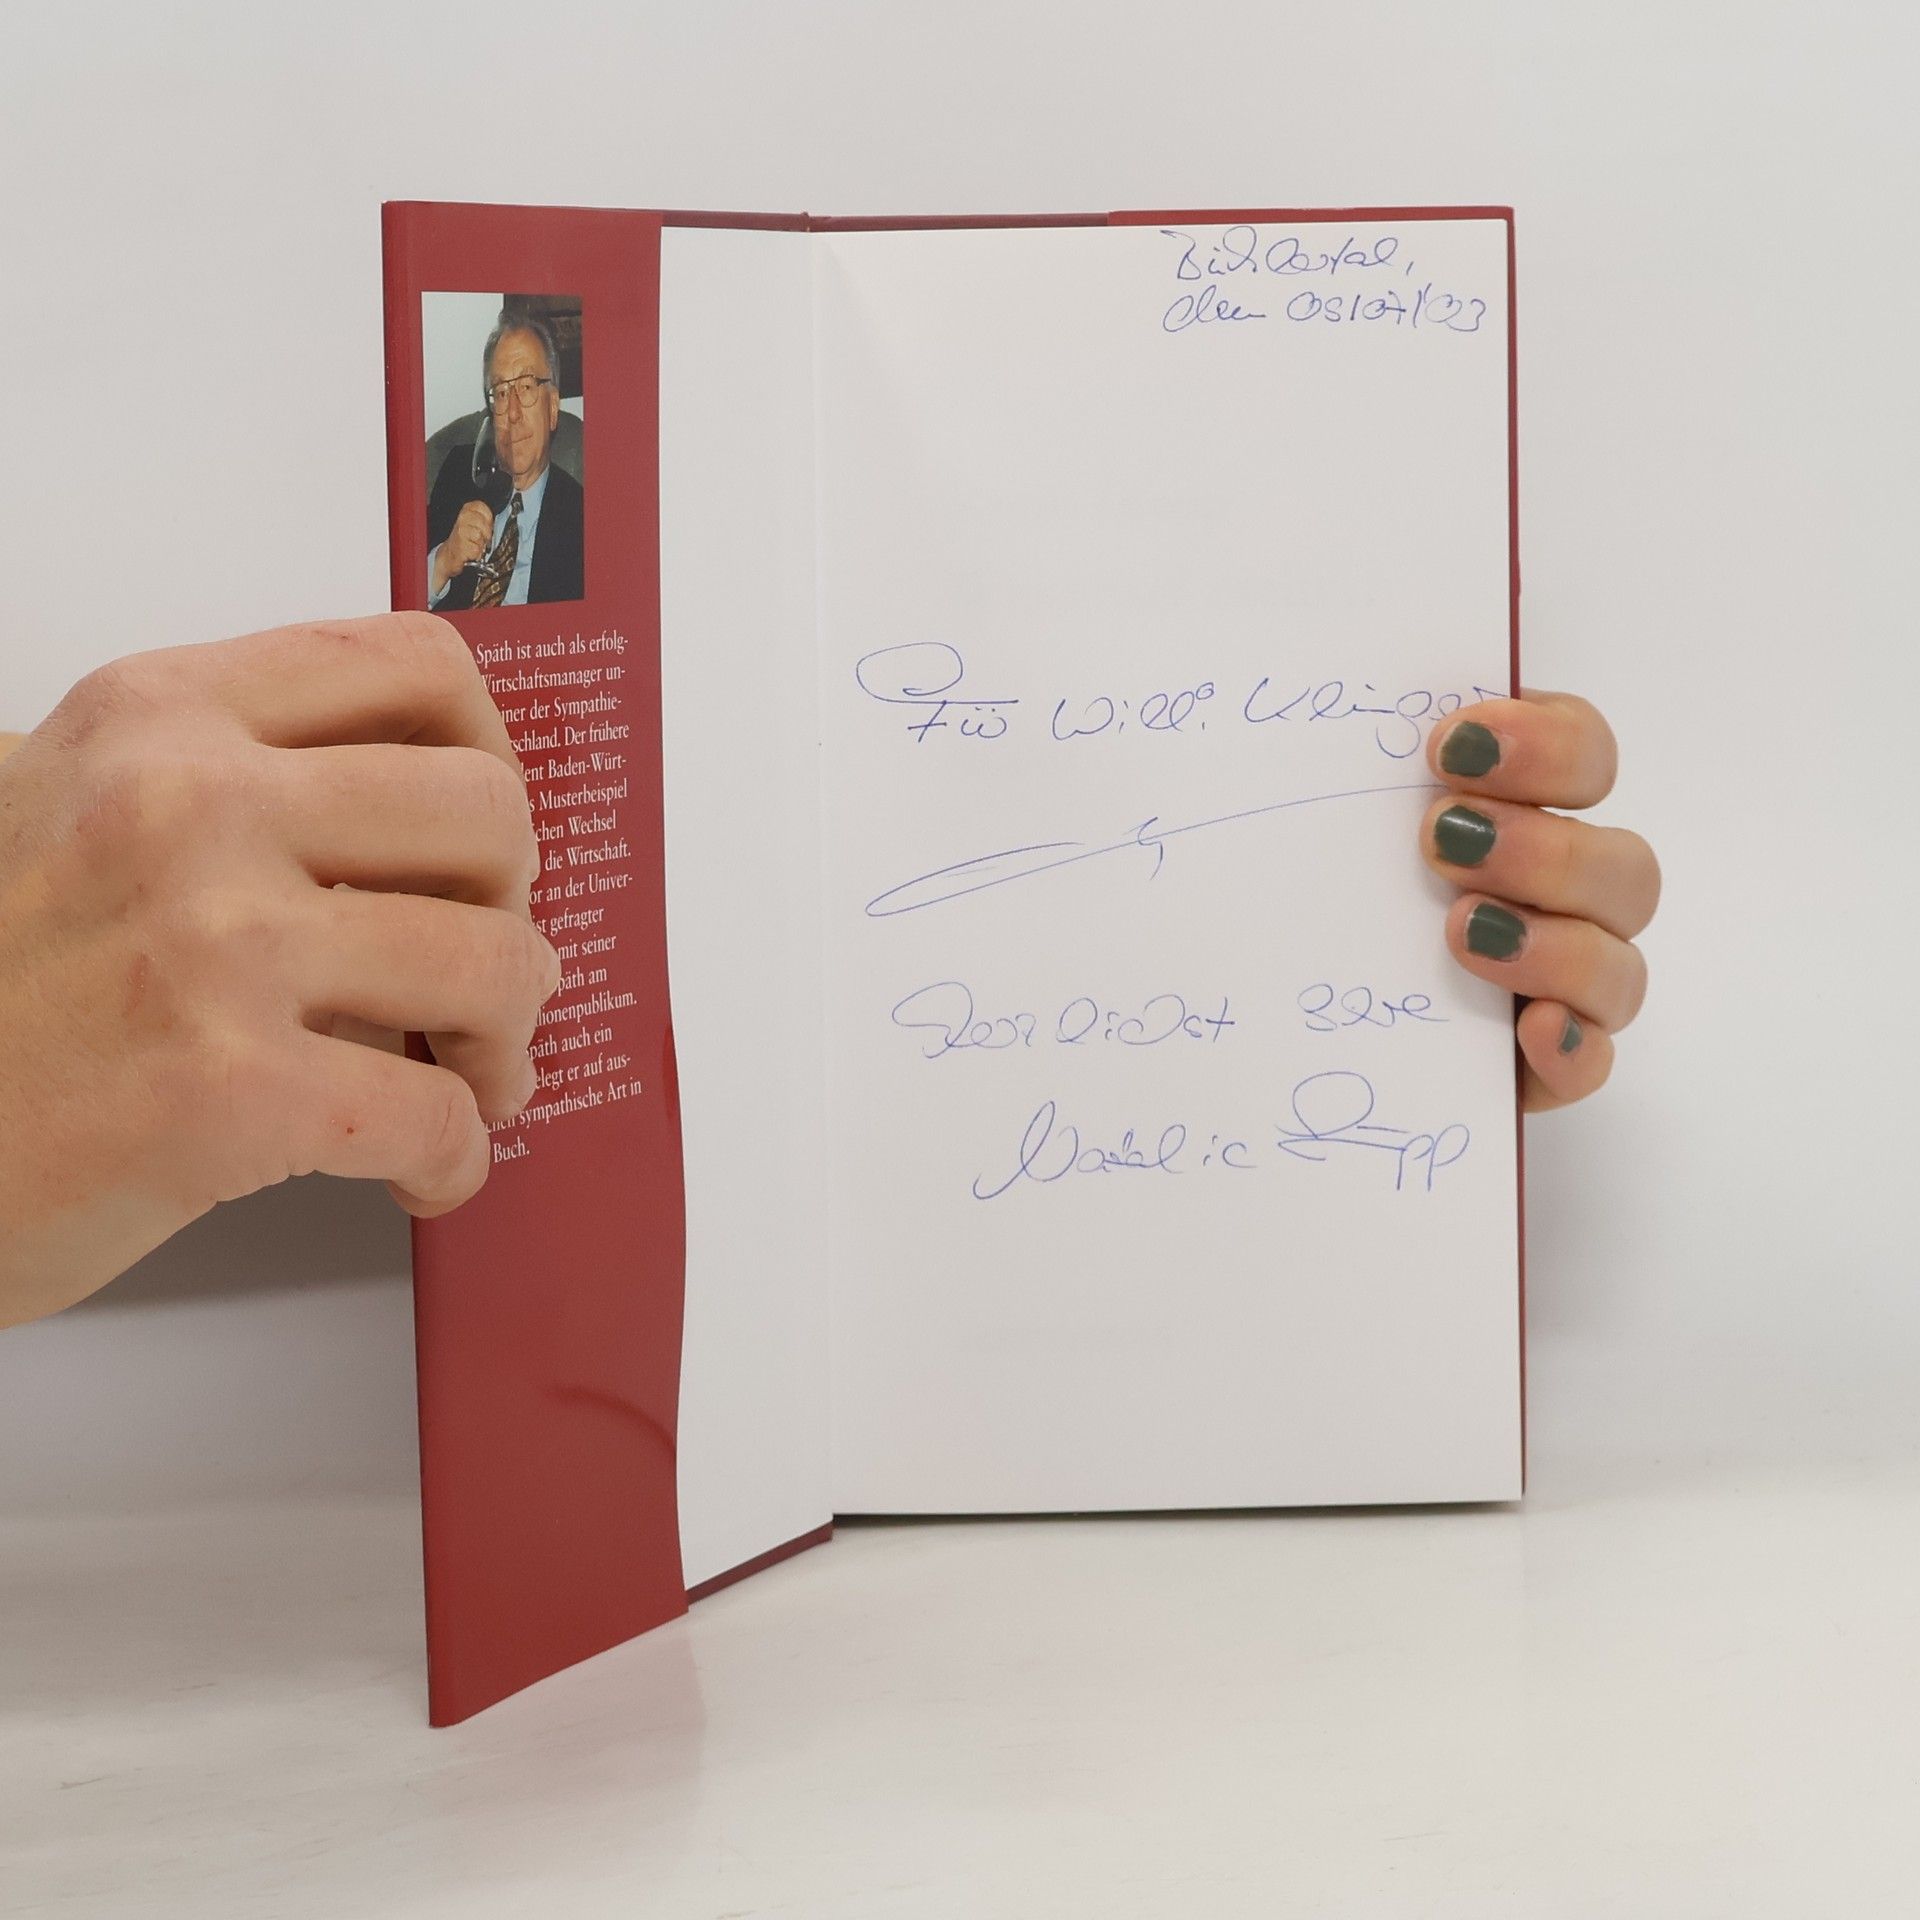 Späth ist auch als erfolg-
Wirtschaftsmanager un-
einer der Sympathie-
schland. Der frühere
dent Baden-Würt-
s Musterbeispiel
chen Wechsel
die Wirtschaft.
or an der Univer-
ist gefragter
mit seiner
päth am
lionenpublikum.
päth auch ein
elegt er auf aus-
chen sympathische Art in
Buch.
Bühlertal,
den 05/07/03
Für Willi Klinger
Herzlichst Ihre
Natalie